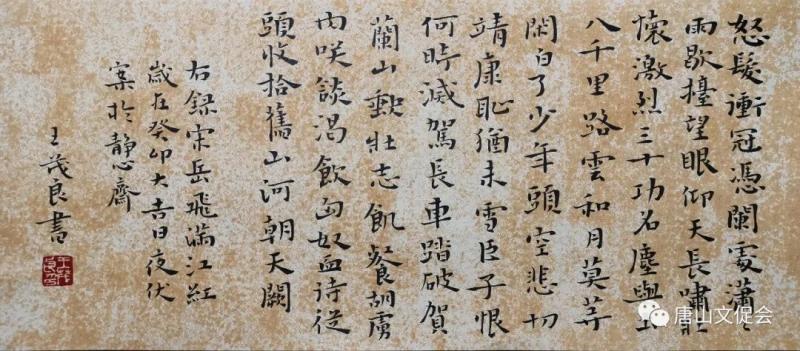 怒髮衝冠憑闌處瀟〻
雨歇擡望眼仰天長嘯壯
懷激烈三十功名塵與土
八千里路雲和月莫等
閑白了少年頭空悲切
靖康恥猶未雪臣子恨
何時滅駕長車踏破賀
蘭山缺壯志飢餐胡虜
肉咲談渴飲匈奴血待從
頭收拾舊山河朝天闕
右錄宋岳飛滿江紅
歲在癸卯大吉日夜伏
案於靜心齋
王茂良書
唐山文促会